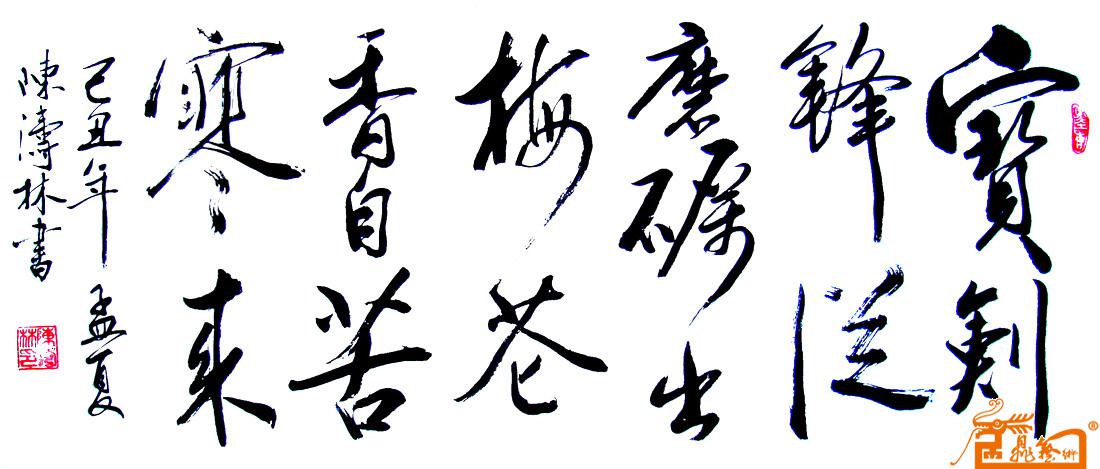 寶劍
鋒從
磨礪出
梅花
香自苦
寒來
己丑年孟夏
陳濤林書